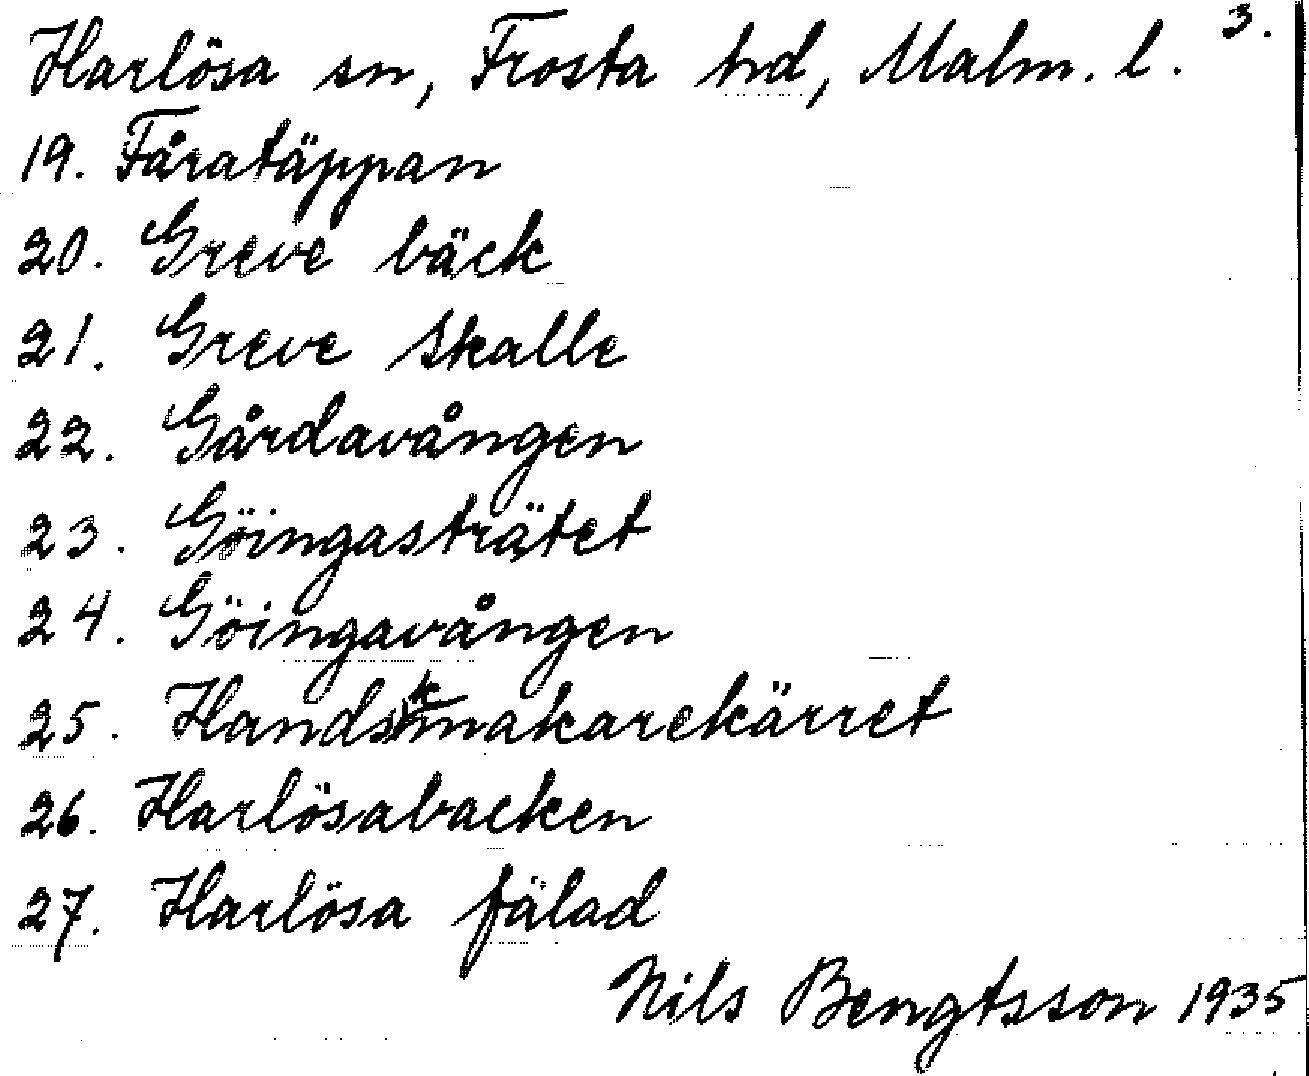 3.
Harlösa sn, Frosta hd, Malm. l.
19. Fåratäppan
20. Greve bäck
21. Greve skalle
22. Gårdavången
23. Göingasträtet
24. Göingavången
25. Handskmakarekärret
26. Harlösabacken
27. Harlösa fälad
Nils Bengtsson 1935